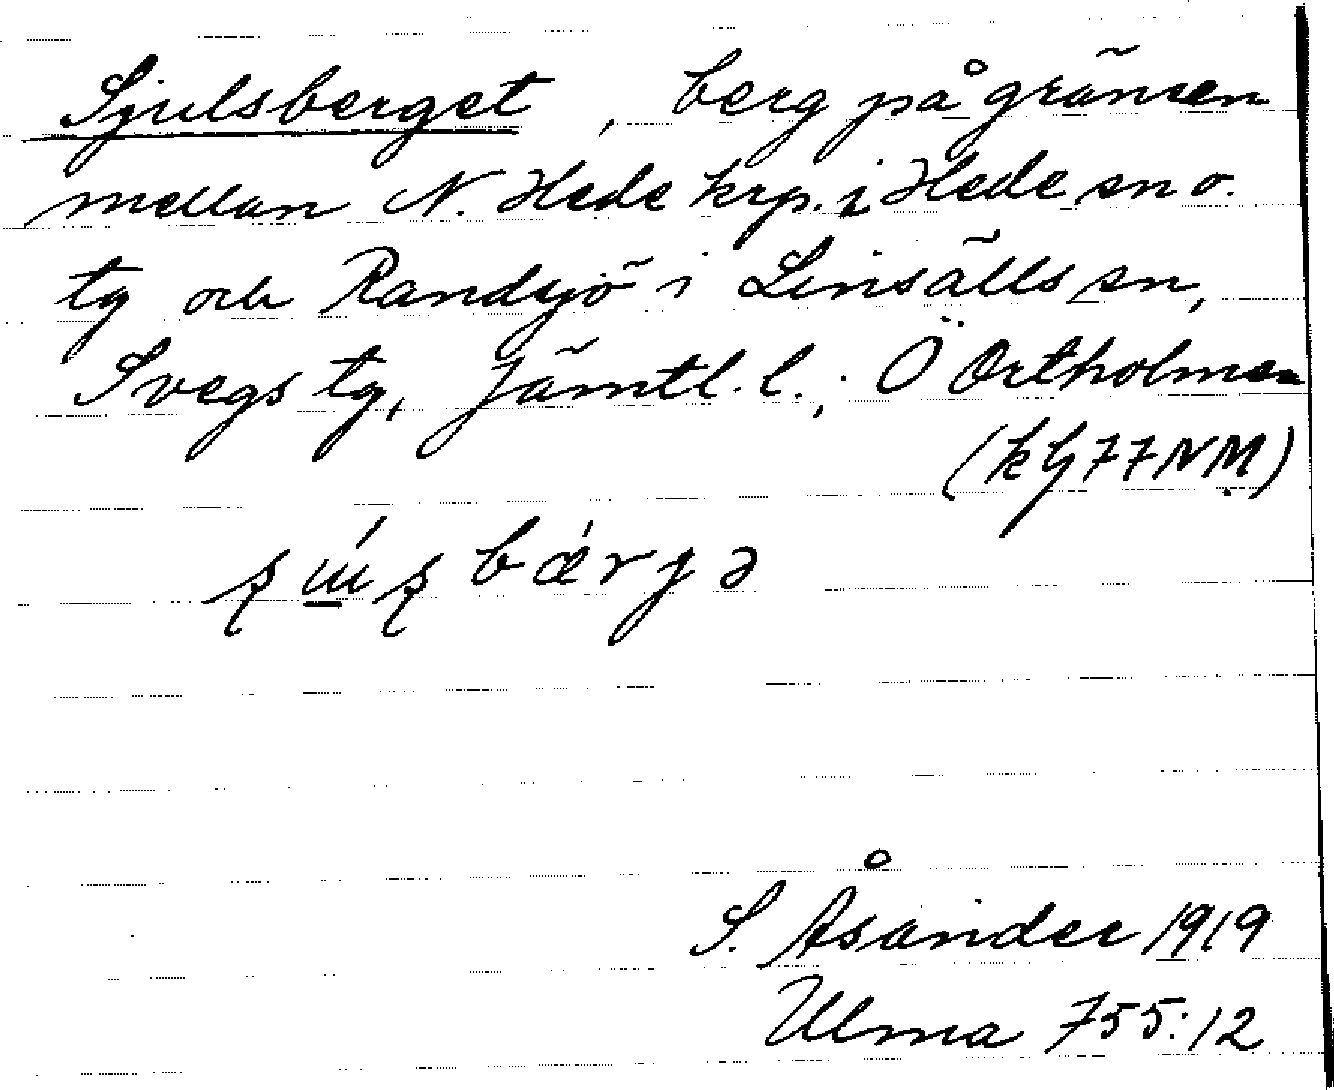 Sjulsberget, berg på gränsen
mellan N. Hede krp. i Hede sn o.
tg och Randsjö i Linsälls sn,
Svegs tg, Jämtl. l.; Ö Ortholmen
(kG77NM)
bærjə
S. Åsander 1919
Ulma 755:12